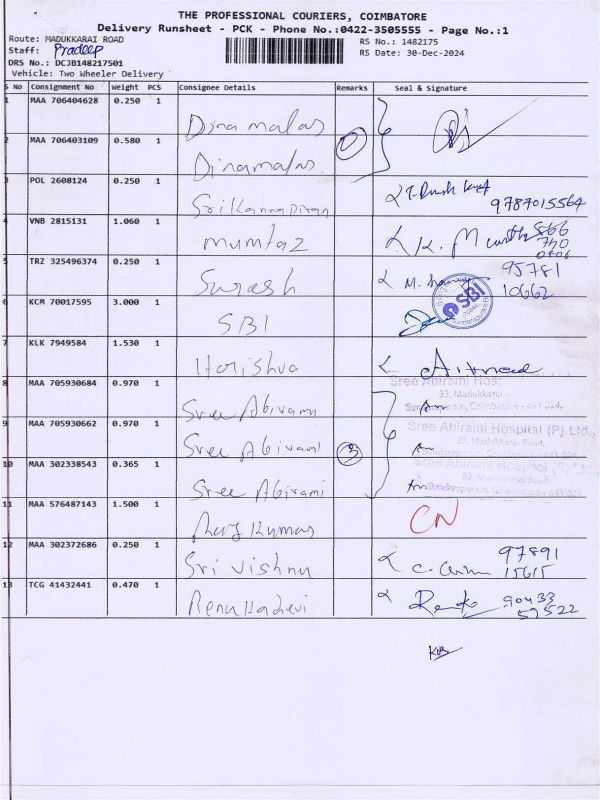 THE PROFESSIONAL COURIERS, COIMBATORE
Delivery Runsheet - PCK - Phone No.:0422-3505555 - Page No.:1
Route: MADUKKARAI ROAD
Staff: Pradeep
DRS No.: DCJB148217501
Vehicle: Two Wheeler Delivery
RS No.: 1482175
RS Date: 30-Dec-2024
S No Consignment No Weight PCS Consignee Details Remarks Seal & Signature
1 MAA 706404628 0.250 1 Dinamalar
2 MAA 706403109 0.580 1 Dinamalar
3 POL 2608124 0.250 1 Srikannapiran 9787015564
4 VNB 2815131 1.060 1 mumtaz K. M
5 TRZ 325496374 0.250 1 Suresh M. 95781
10662
6 KCM 70017595 3.000 1 SBI SBI
7 KLK 7949584 1.530 1 Harishva
8 MAA 705930684 0.970 1 Sree Abirami
Sree Abirami Hos
33, Madukkarai
Coimbatore - 641 024.
9 MAA 705930662 0.970 1 Sree Abirami 3
Sree Abirami Hospital (P) Ltd.,
33, Madukkarai Road,
10 MAA 302338543 0.365 1 Sree Abirami
Sree Abirami Hospital
33, Madukkarai Road
11 MAA 576487143 1.500 1 Raj Kumar CN
12 MAA 302372686 0.250 1 Sri vishnu C. 97891
15615
13 TCG 41432441 0.470 1 Renukadevi 90433
59522